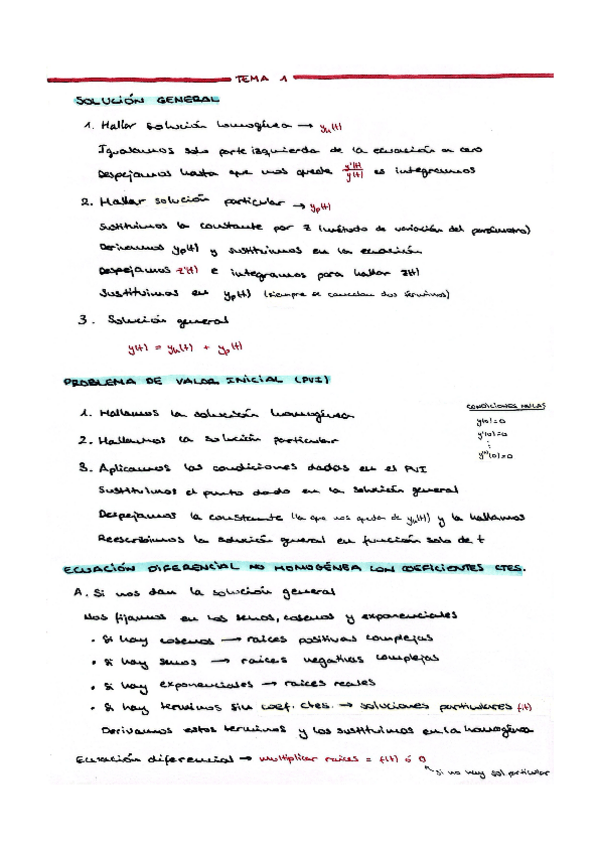 TEMA 1
SOLUCIÓN GENERAL
1. Hallar solución homogénea → yh(t)
Igualamos solo parte izquierda de la ecuación a cero
Despejamos hasta que nos quede y'(t)/y(t) e integramos
2. Hallar solución particular → yp(t)
Sustituimos la constante por z (método de variación del parámetro)
Derivamos yp(t) y sustituimos en la ecuación
Despejamos z'(t) e integramos para hallar z(t)
Sustituimos en yp(t) (siempre se cancelan dos términos)
3. Solución general
y(t) = yh(t) + yp(t)
PROBLEMA DE VALOR INICIAL (PVI)
CONDICIONES NULAS
y(0)=0
y'(0)=0
⋮
yⁿ(0)=0
1. Hallamos la solución homogénea
2. Hallamos la solución particular
3. Aplicamos las condiciones dadas en el PVI
Sustituimos el punto dado en la solución general
Despejamos la constante (la que nos queda de yh(t)) y la hallamos
Reescribimos la solución general en función solo de t
ECUACIÓN DIFERENCIAL NO HOMOGÉNEA CON COEFICIENTES CTES.
A. Si nos dan la solución general
Nos fijamos en los senos, cosenos y exponenciales
• Si hay cosenos → raíces positivas complejas
• Si hay senos → raíces negativas complejas
• Si hay exponenciales → raíces reales
• Si hay términos sin coef. ctes. → soluciones particulares f(t)
Derivamos estos términos y los sustituimos en la homogénea
Ecuación diferencial → multiplicar raíces = f(t) ó 0
si no hay sol particular